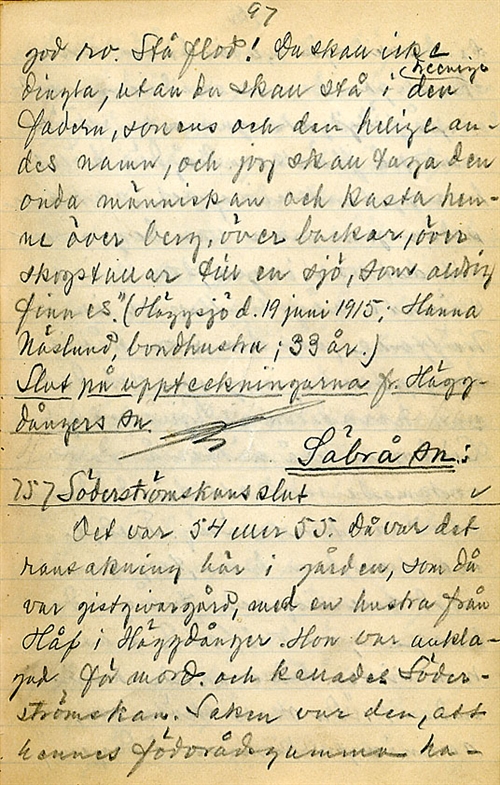 97
god ro. Stå flod! Du skall icke
dingla, utan du skall stå i den
Fadern, sonens och den helige an-
des namn, och jag skall taga den
onda människan och kasta hen-
ne över berg, över backar, över
skogstallar till en sjö, som aldrig
finnes." (Häggsjö d. 19 juni 1915; Hanna
Näslund, bondhustru; 33 år.)
Slut på uppteckningarna fr. Hägg-
dångers sn.
Säbrå sn.:
757 Söderströmskans slut
Det var 54 eller 55. Då var det
ransakning här i gården, som då
var gistgivargård, med en hustru från
Håf i Häggdånger. Hon var ankla-
gad för mord och kallades Söder-
strömskan. Saken var den, att
hennes födorådsgumma ha-